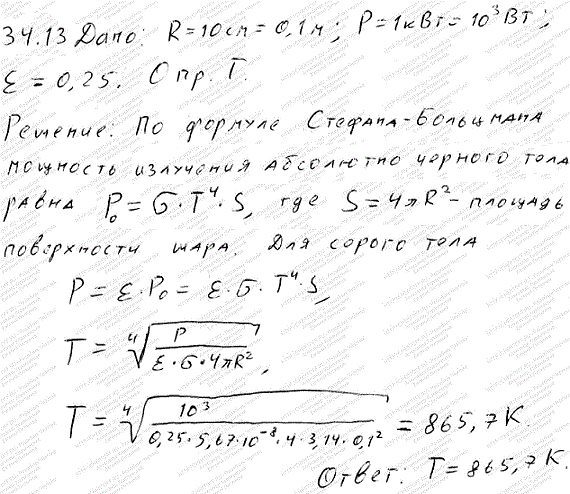 34.13 Дано: R = 10см = 0,1м; P = 1кВт = 10³Вт;
ε = 0,25. Опр. T.
Решение: По формуле Стефана-Больцмана
мощность излучения абсолютно черного тола
равна P₀ = σ·T⁴·S, где S = 4πR² - площадь
поверхности шара. Для сорого тола
P = ε·P₀ = ε·σ·T⁴·S,
T = ⁴√(P / (ε·σ·4πR²)),
T = ⁴√(10³ / (0,25·5,67·10⁻⁸·4·3,14·0,1²)) = 865,7К.
Ответ: T = 865,7К.